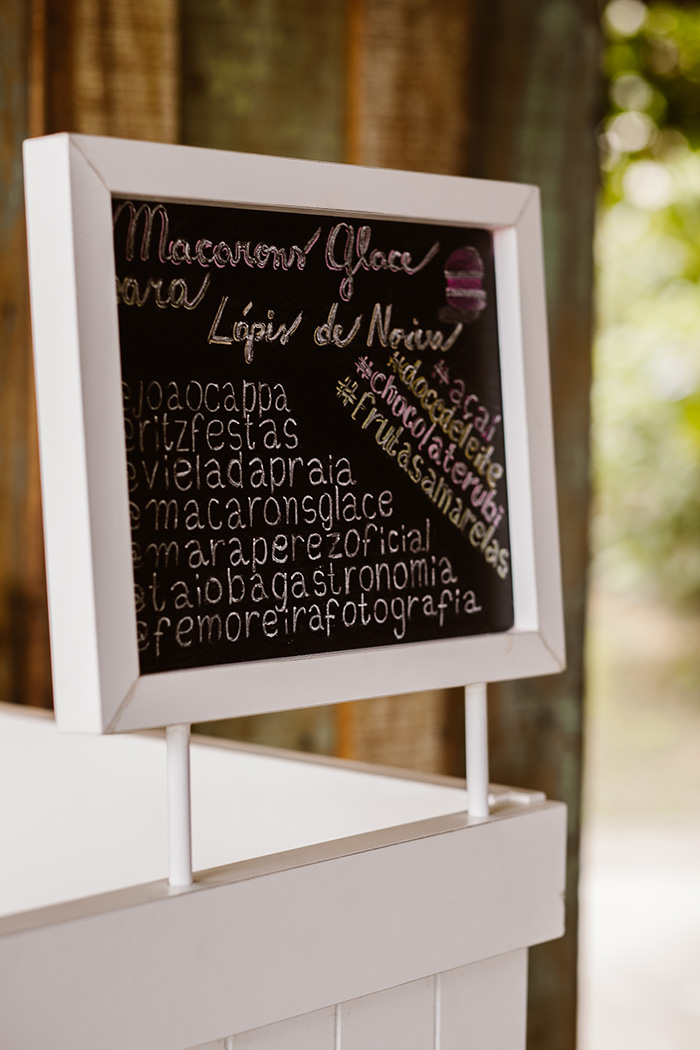 Macarons Glace
para
Lápis de Noiva
@joaocappa
@ritzfestas
@vieladapraia
@macaronsglace
@maraperezoficial
@taiobagastronomia
@femoreirafotografia
#açaí
#docedeleite
#chocolaterubi
#frutasamarelas